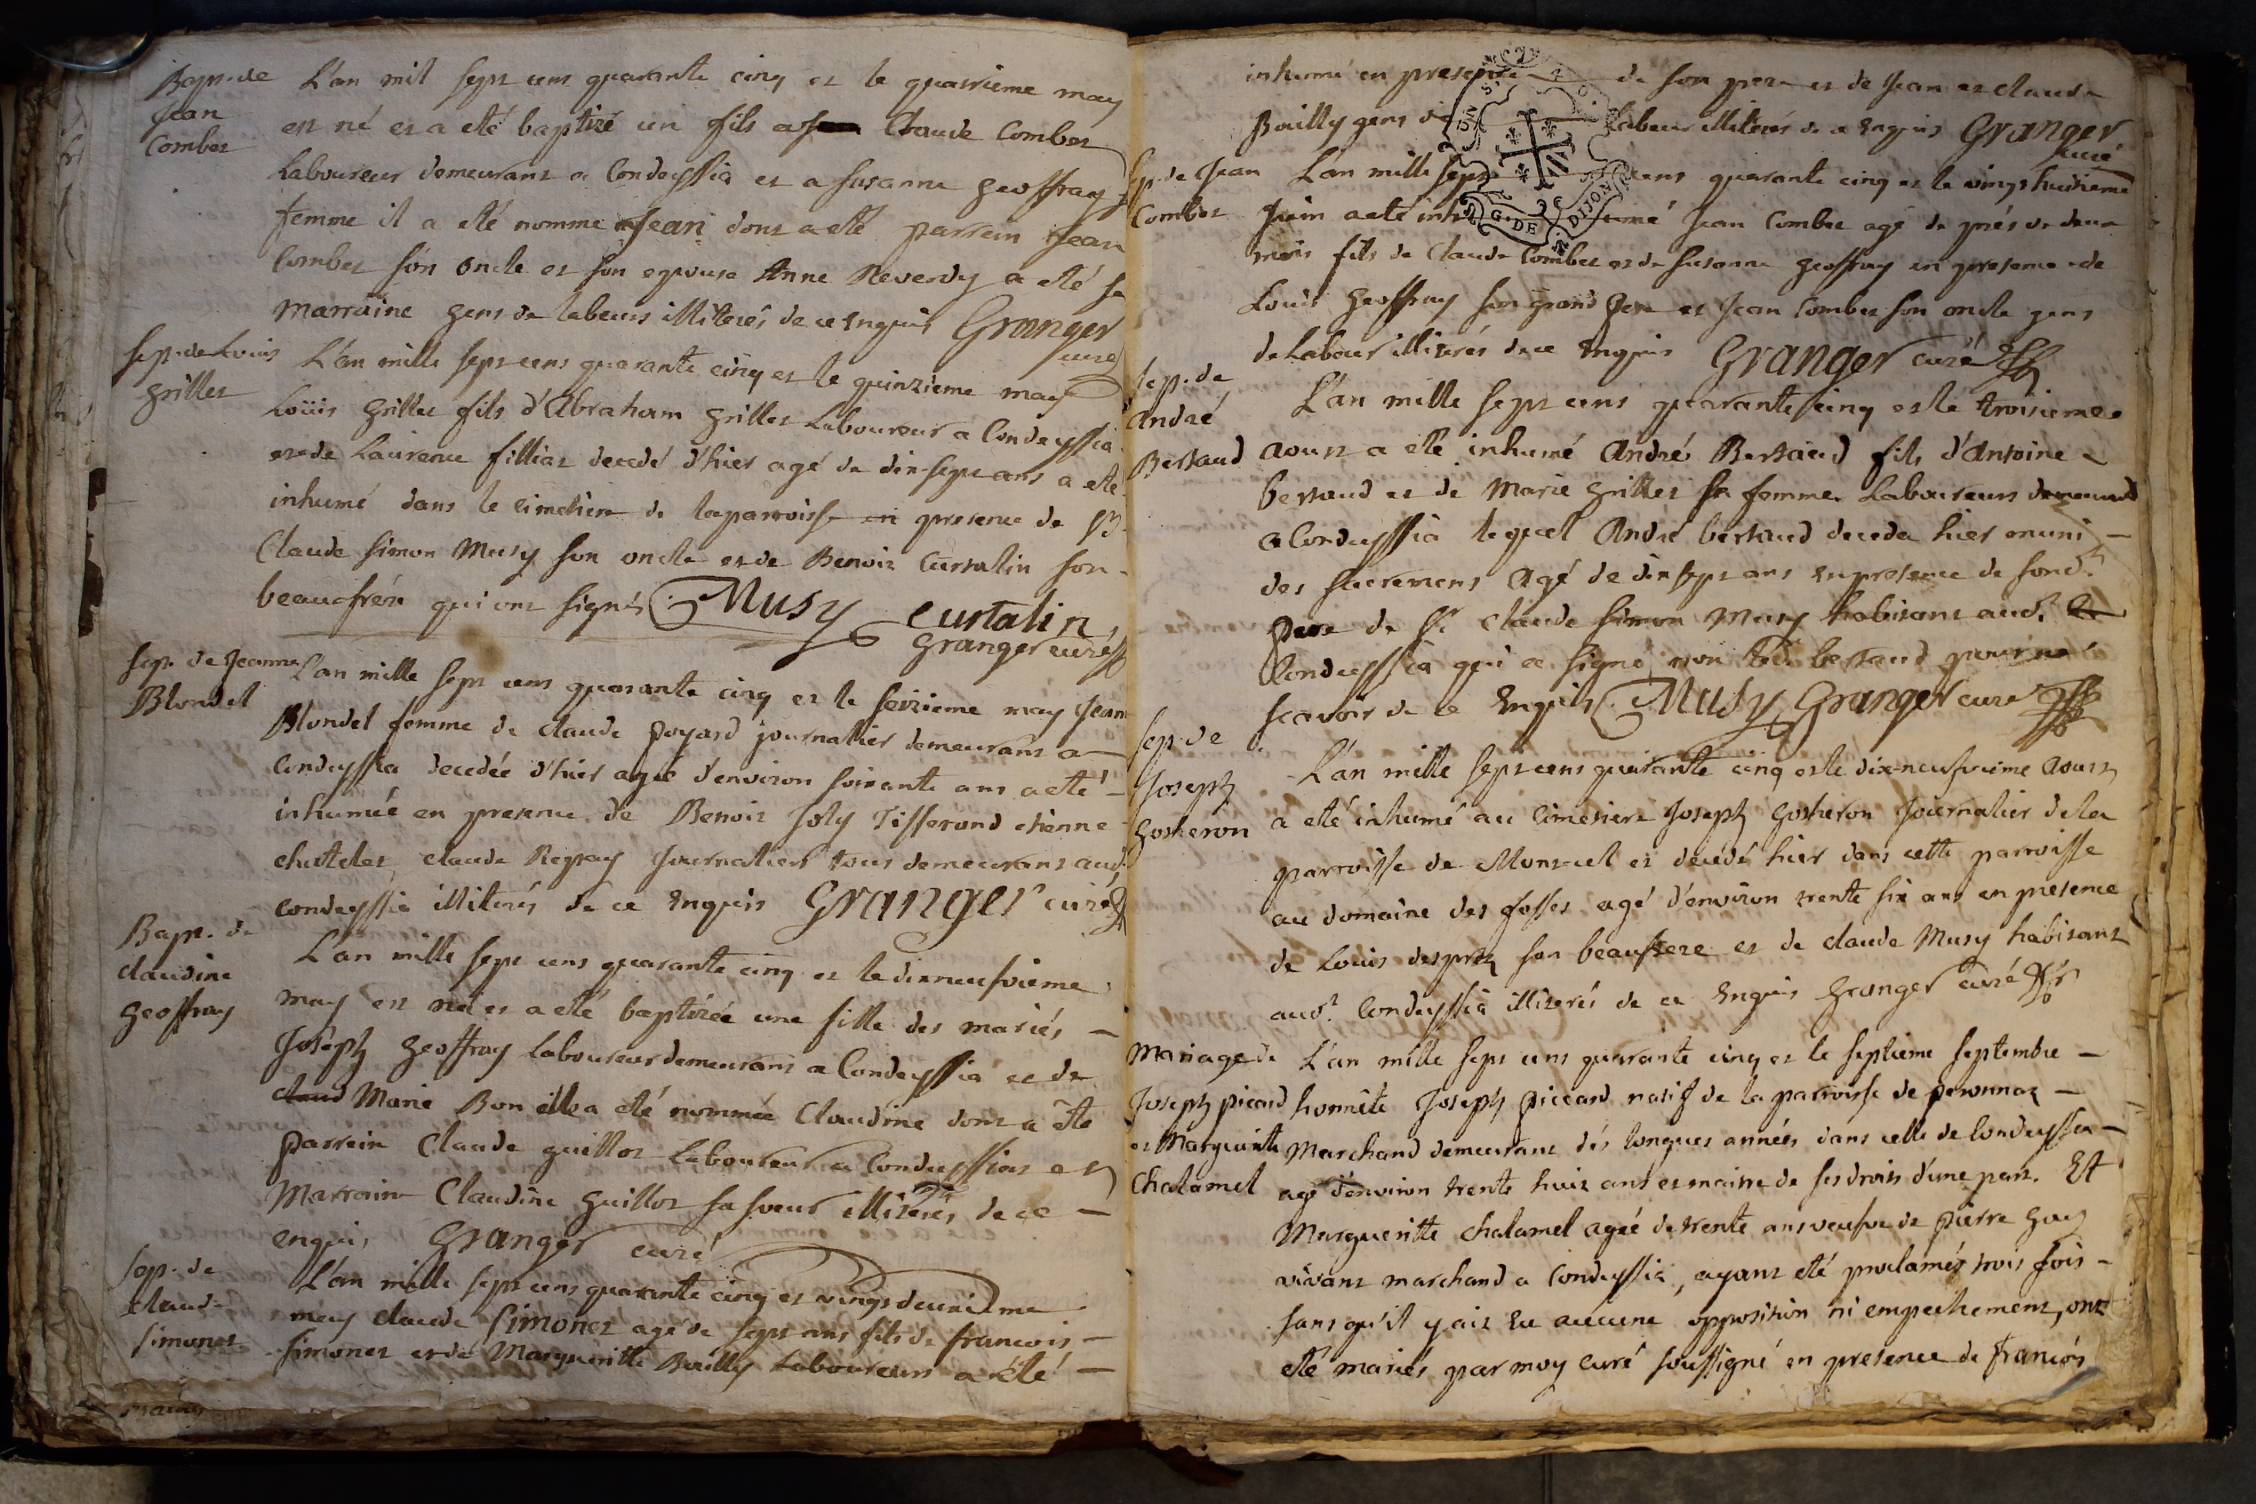 Bapt. de
Jean
Combet
L'an mil sept cens quarante cinq et le quatrieme may
est né et a eté baptizé un fils a Claude Combet
Laboureur demeurant a Condeyssia et a Susanne Geoffray
femme il a eté nommé Jean dont a eté parrein Jean
Combet son oncle et son epouse Anne Reverdy a eté sa
marraine gens de labeurs illiterés de ce Enquis Granger
curé
sep. de Louis
Grillet
L'an mille sept cens quarante cinq et le quinzieme may
Loüis Grillet fils d'Abraham Grillet Laboureur a Condeyssia
et de Laurence filliat decedé d'hier agé de dix sept ans a eté
inhumé dans le cimetiere de la parroisse en presence de Sr.
Claude Simon Musy son oncle et de Benoit Curtalin son
beaufrére qui ont signés Musy Curtalin
Granger curé
sep. de Jeanne
Blondel
L'an mille sept cens quarante cinq et le seizieme may Jeanne
Blondel femme de Claude Poyard journallier demeurant a
Condeyssia decedée d'hier agée d'environ soixante ans a eté
inhumée en presence de Benoit Joly Tisserand etienne
chatelet, claude Repay Journaliers tous demeurans aud.
condeyssia illiterés de ce Enquis Granger curé
Bapt. de
claudine
Geoffray
L'an mille sept cens quarante cinq et le dixneufvieme
may est née et a eté baptizée une fille des mariés
Joseph Geoffray Laboureur demeurant a Condeyssia et de
claud Marie Bon elle a eté nommée Claudine dont a eté
parrein Claude guillot Laboureur a Condeyssiat et
Marraine Claudine Guillot sa soeur illiterés de ce
enquis Granger curé
sep. de
claude
simonet
L'an mille sept cens quarante cinq et vingt deuxieme
may claude Simonet agé de sept ans fils de francois
simonet et de Margueritte Bailly Laboureurs a eté
inhumé en presence de son pere et de Jean et claude
Bailly gens de labeur illiterés de ce Enquis Granger
curé
sep. de Jean
Combet
L'an mille sept cens quarante cinq et le vingt huitieme
Juin a eté inhumé Jean Combet agé de prés de deux
mois fils de Claude Combet et de Susanne Geoffray en presence de
Louis Geoffray son grand Pere et Jean Combet son oncle gens
de Labour illiterés de ce Enquis Granger curé
sep. de
André
Bertaud
L'an mille sept cens quarante cinq et le troisieme
aoust a eté inhumé André Bertaud fils d'Antoine
bertaud et de Marie Grillet sa femme Laboureurs demeurant
a Condeyssia lequel André bertaud deceda hier muni
des sacremens agé de dix sept ans en presence de sond.
pere de Sr. Claude Simon Musy habitant aud.
Condeyssia qui a signé non led. bertaud pour ne
scavoir de ce Enquis Musy Granger curé
sep. de
Joseph
Gosheron
L'an mille sept cens quarante cinq et le dix neufvieme aoust
a eté inhumé au cimetiere Joseph Gosheron Journalier de la
parroisse de Montcel et decedé hier dans cette parroisse
au domaine des fosses agé d'environ trente six ans en presence
de Louis desprez son beaufrere et de claude Musy habitant
aud. Condeyssia illiterés de ce Enquis Granger curé
Mariage de
Joseph picard
et Margueritte
Chalamel
L'an mille sept cens quarante cinq et le septieme septembre
honnête Joseph piccard natif de la parroisse de peronnaz
Marchand demeurant dés longues années dans celle de Condeyssia
agé d'environ trente huit ans et maitre de ses droits d'une part. Et
Margueritte Chalamel agée de trente ans veufve de pierre Guy
vivant marchand a Condeyssia, ayant eté proclamés trois fois
sans qu'il y ait eu aucune opposition ni empechement, ont
eté mariés par moy curé soussigné en presence de Francois